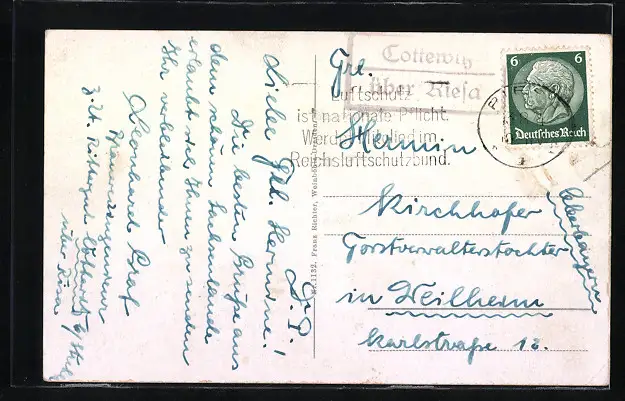 D. P.!
Liebe Frl. Hermine!
Die besten Grüße aus
dem schönen Sachsenlande
erlaubt sich Ihnen zu senden
Ihr verbleibender
Leonhard Graf
z. Zt. Rittergut Cottewitz b/Strehla
über Riesa
Nr. 1132. Franz Richter, Weinböhla-Dresden
Cottewitz
über Riesa
Luftschutz
ist nationale Pflicht.
Werdet Mitglied im
Reichsluftschutzbund.
6 6
Deutsches Reich
Frl.
Hermin
Kirchhofer
Forstverwalterstochter
in Weilheim
Oberbayern
Karlstraße 12.